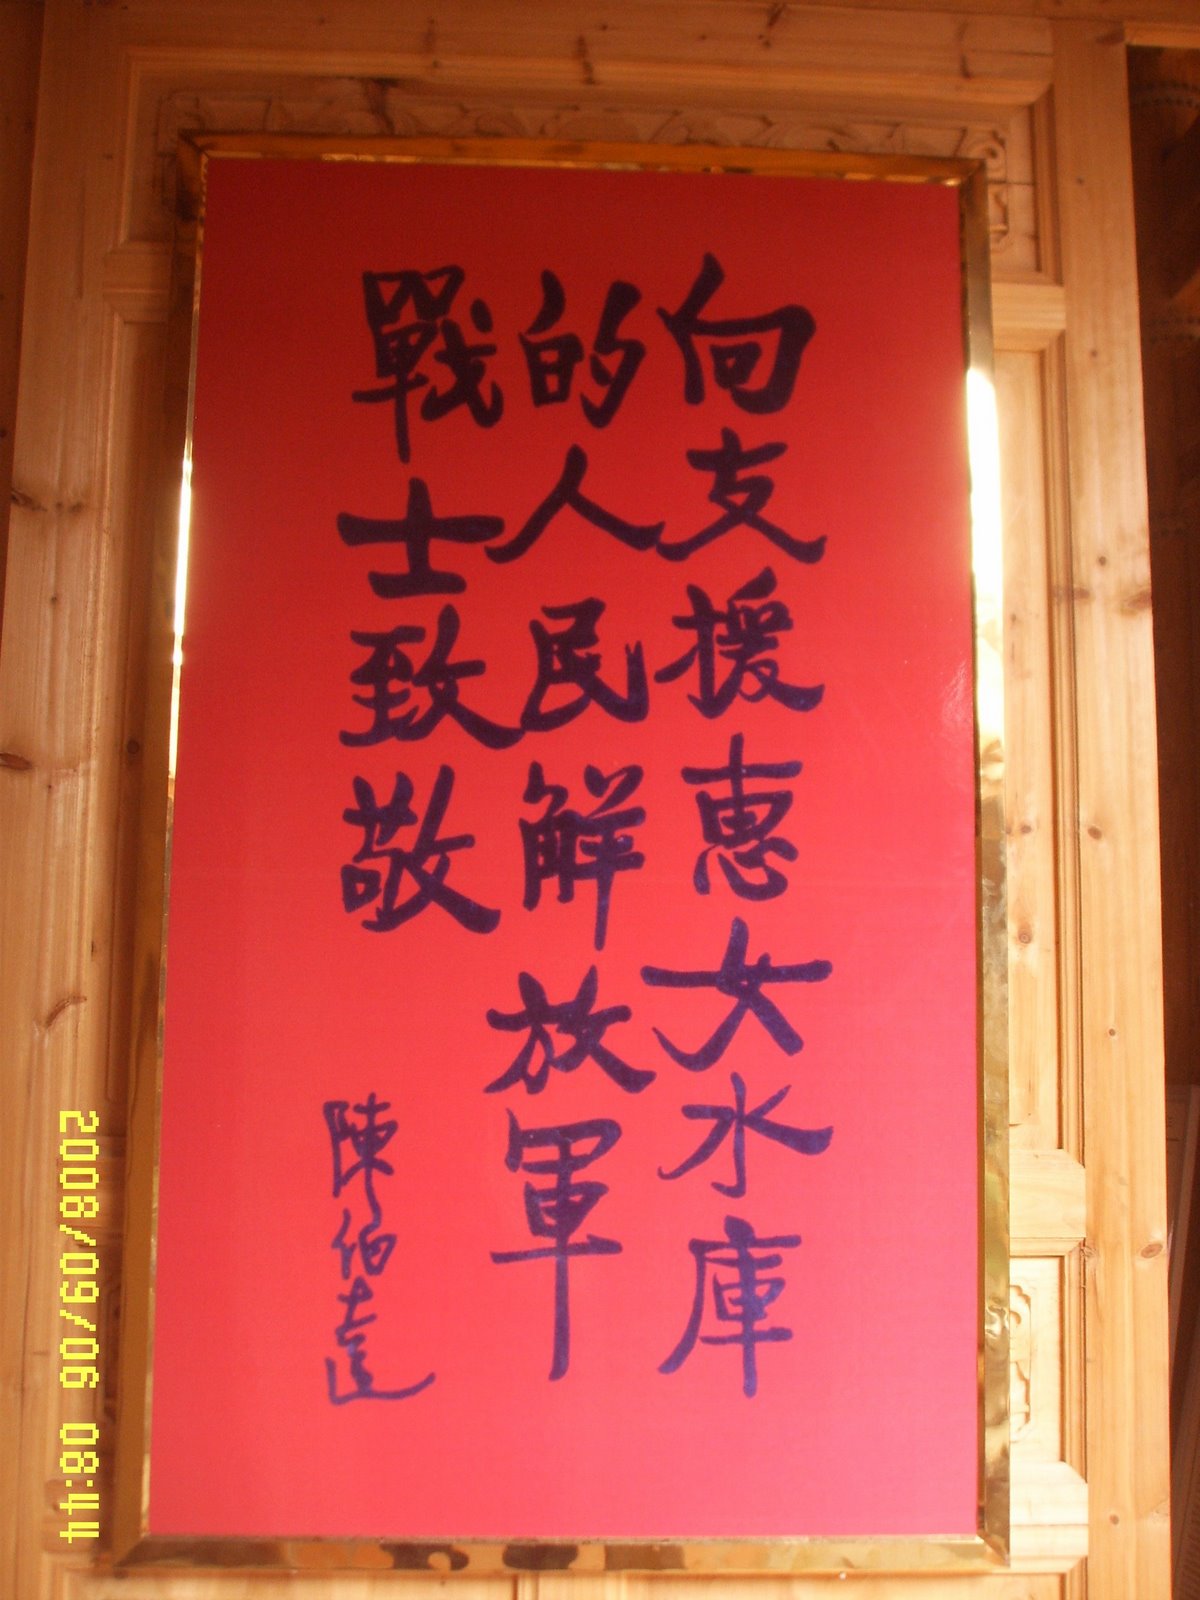 向支援惠女水庫
的人民解放軍
戰士致敬
陳伯達
2008/09/06 08:44